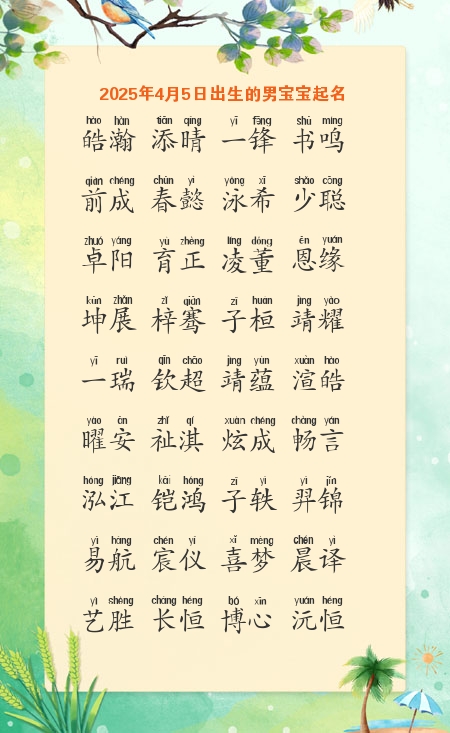 2025年4月5日出生的男宝宝起名
hào hàn tiān qíng yī fēng shū míng
皓瀚 添晴 一锋 书鸣
qián chéng chūn yì yǒng xī shào cōng
前成 春懿 泳希 少聪
zhuó yáng yù zhèng líng dǒng ēn yuán
卓阳 育正 凌董 恩缘
kūn zhǎn zǐ qiān zǐ huán jìng yào
坤展 梓骞 子桓 靖耀
yī ruì qīn chāo jìng yùn xuàn hào
一瑞 钦超 靖蕴 渲皓
yào ān zhǐ qí xuàn chéng chàng yán
曜安 祉淇 炫成 畅言
hóng jiāng kǎi hóng zǐ yì yì jǐn
泓江 铠鸿 子轶 羿锦
yì háng chén yí xǐ mèng chén yì
易航 宸仪 喜梦 晨译
yì shèng cháng héng bó xīn yuán héng
艺胜 长恒 博心 沅恒